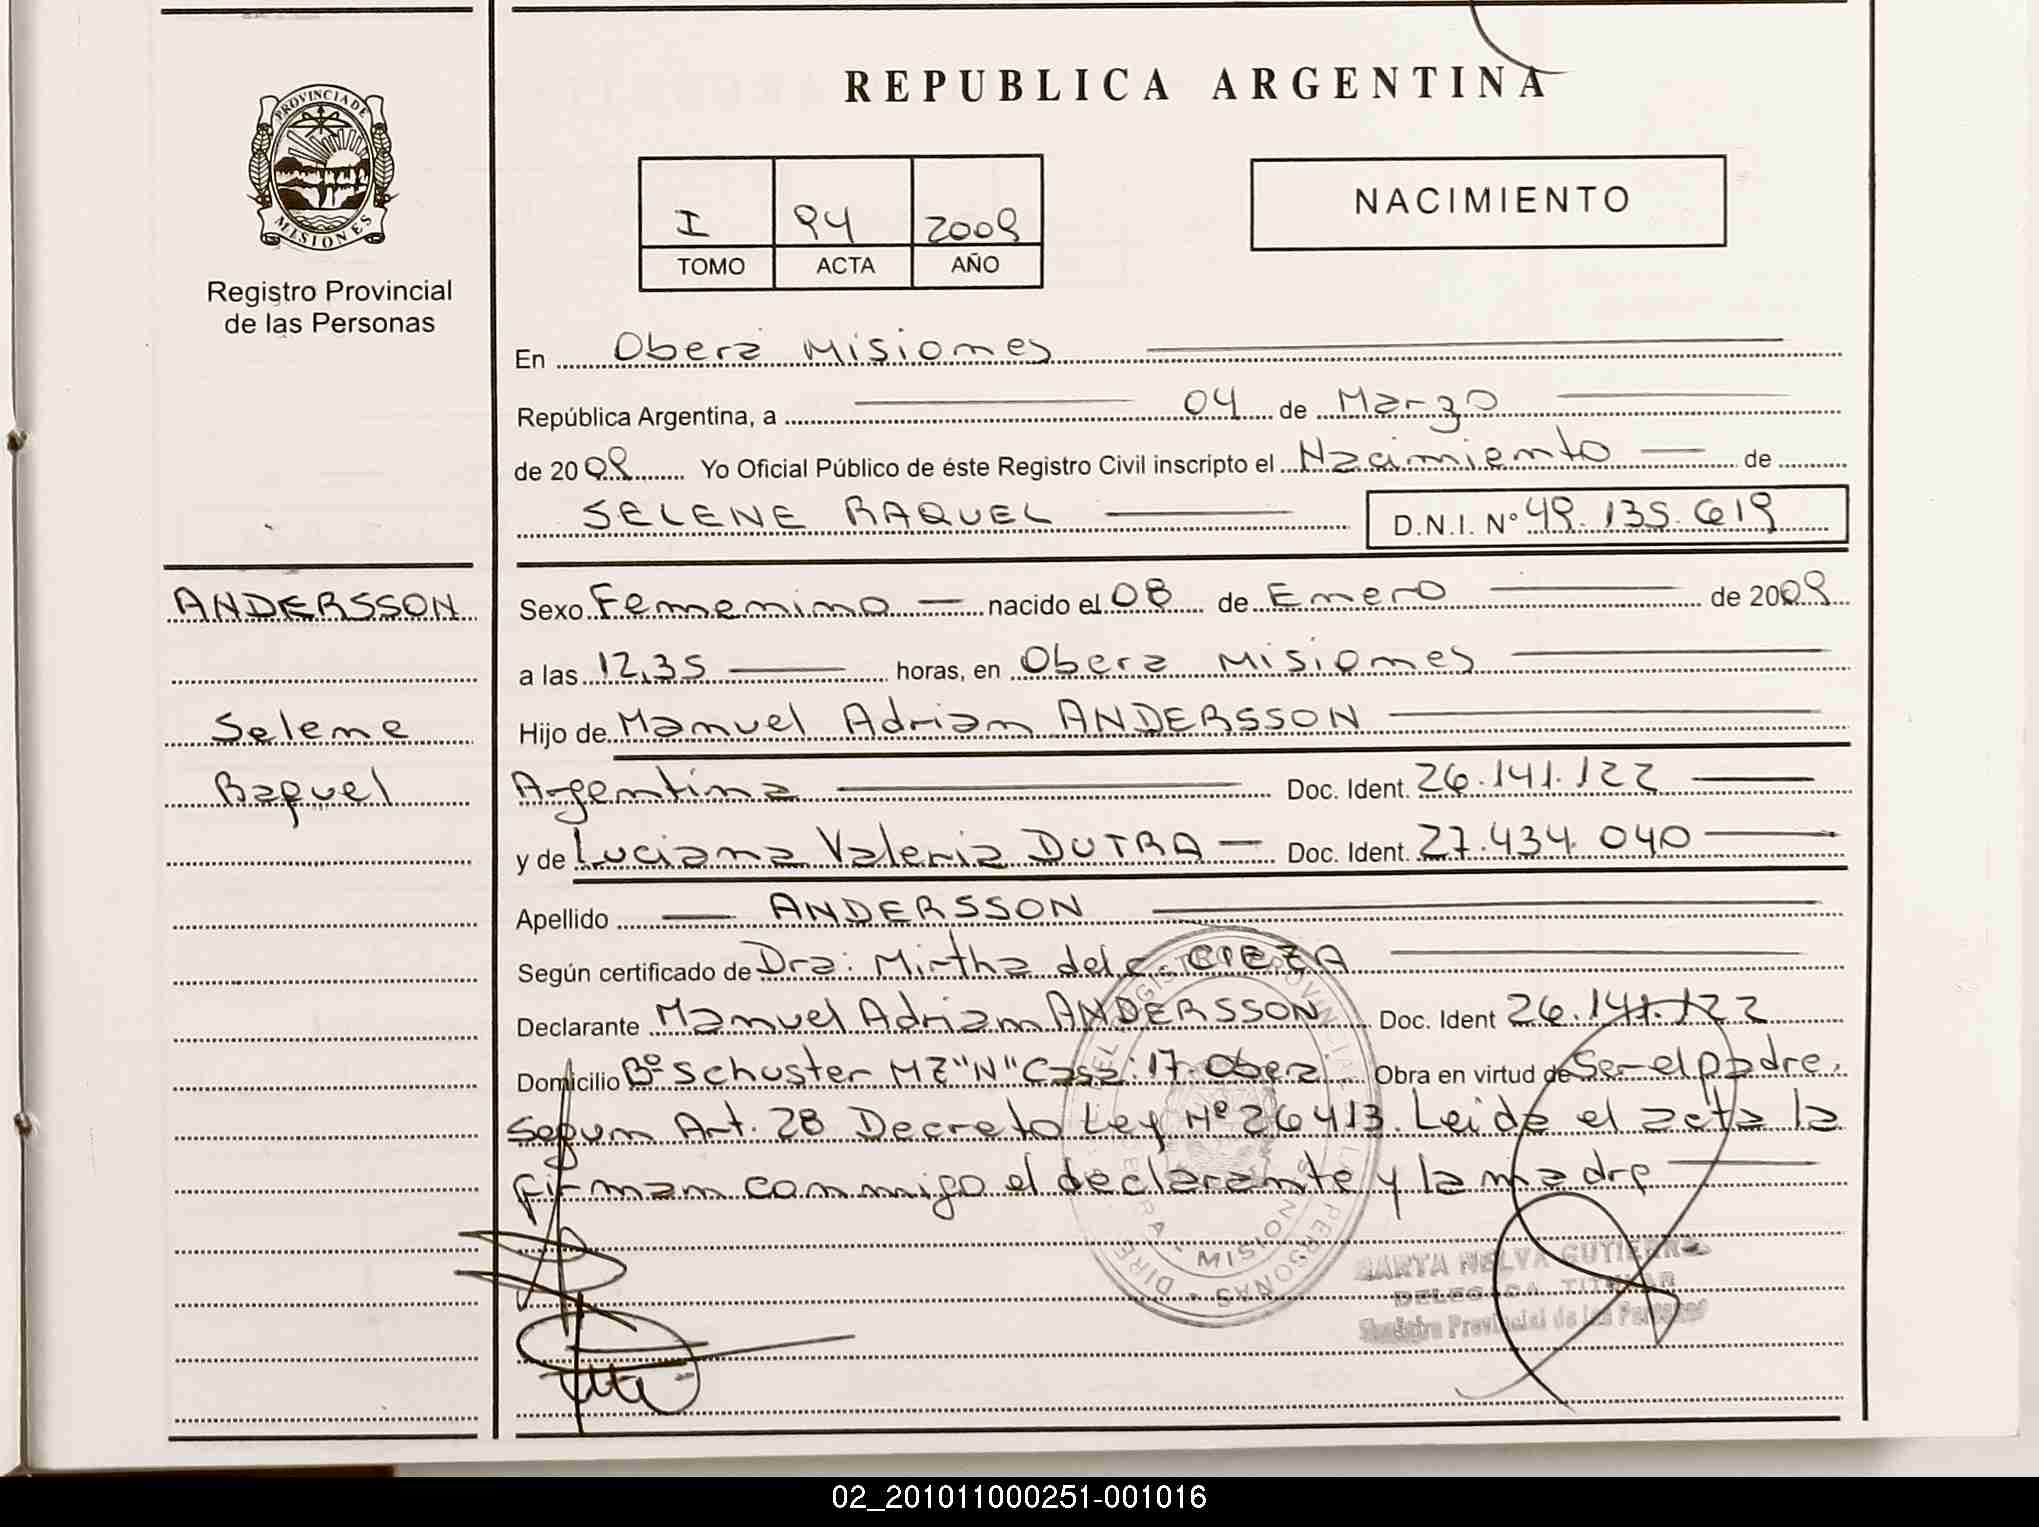 REPUBLICA ARGENTINA
PROVINCIA DE
MISIONES
Registro Provincial
de las Personas
I 94 2009
TOMO ACTA AÑO
NACIMIENTO
En Obera Misiones
República Argentina, a 04 de Marzo
de 2009 Yo Oficial Público de éste Registro Civil inscripto el Nacimiento de
SELENE RAQUEL D.N.I. N° 49.135.619
ANDERSSON
Selene
Raquel
Sexo Femenino nacido el 08 de Enero de 2009
a las 12,35 horas, en Obera Misiones
Hijo de Manuel Adrian ANDERSSON
Argentina Doc. Ident. 26.141.122
y de Luciana Valeria DUTRA Doc. Ident. 27.434.040
Apellido ANDERSSON
Según certificado de Dra: Mirtha del c. CIEZA
Declarante Manuel Adrian ANDERSSON Doc. Ident 26.141.122
Domicilio B° Schuster MZ "N" Casa: 17. Obera Obra en virtud de Ser el padre,
segun Art. 28 Decreto Ley N° 26413. Leida el acta la
firman conmigo el declarante y la madre
MISIONES
MARTA NELVA GUTIERREZ
DELEGADA TITULAR
Registro Provincial de Las Personas
02_201011000251-001016